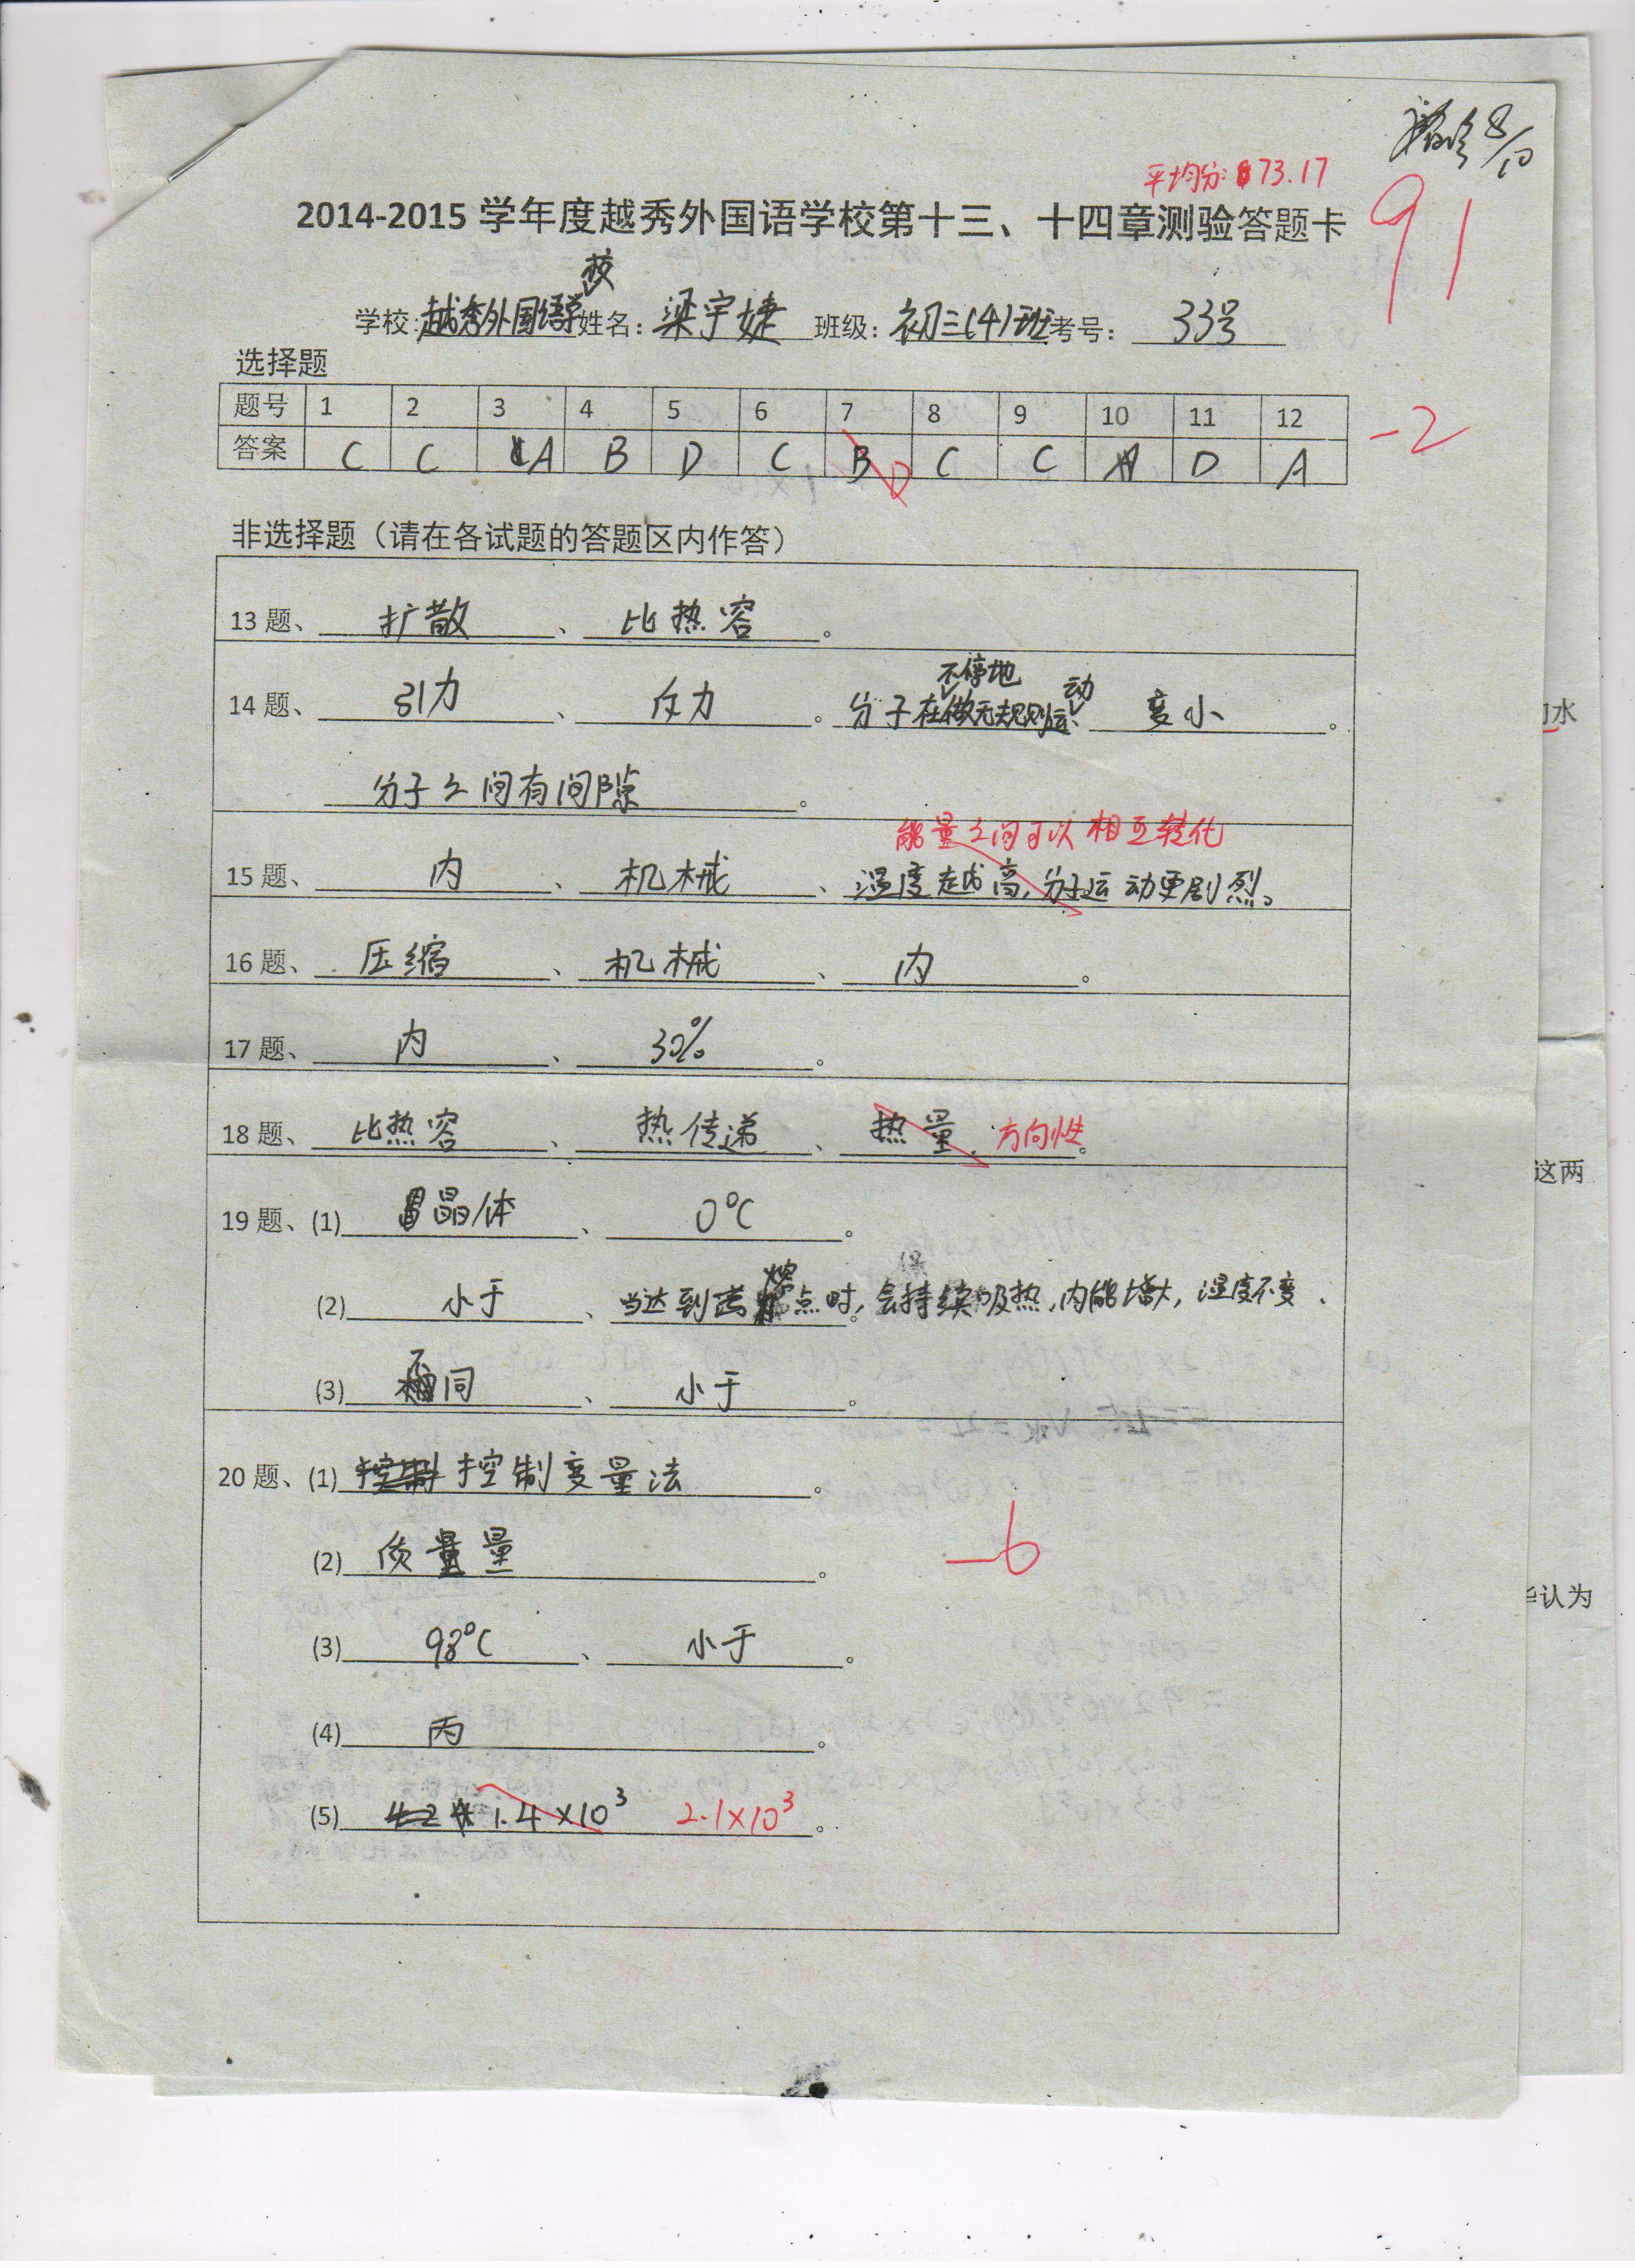 8/10
平均分:73.17
91
2014-2015 学年度越秀外国语学校第十三、十四章测验答题卡
学校:越秀外国语学校 姓名:梁宇婕 班级:初三(4)班 考号:33号
选择题
题号 1 2 3 4 5 6 7 8 9 10 11 12
答案 C C A B D C B D C C A D A
-2
非选择题(请在各试题的答题区内作答)
13 题、扩散、比热容。
14 题、引力、斥力。分子在不停地做无规则运动、变小。
分子之间有间隙。
能量之间可以相互转化
15 题、内、机械、温度越高,分子运动更剧烈。
16 题、压缩、机械、内。
17 题、内、30%。
18 题、比热容、热传递、热量 方向性。
19 题、(1)晶体、0℃。
(2)小于、当达到熔点时,会持续吸热,内能增大,温度不变。
(3)不同、小于。
20 题、(1)控制变量法。
(2)质量。
-6
(3)98℃、小于。
(4)丙。
(5)1.4×10³ 2.1×10³。
水
这两
认为